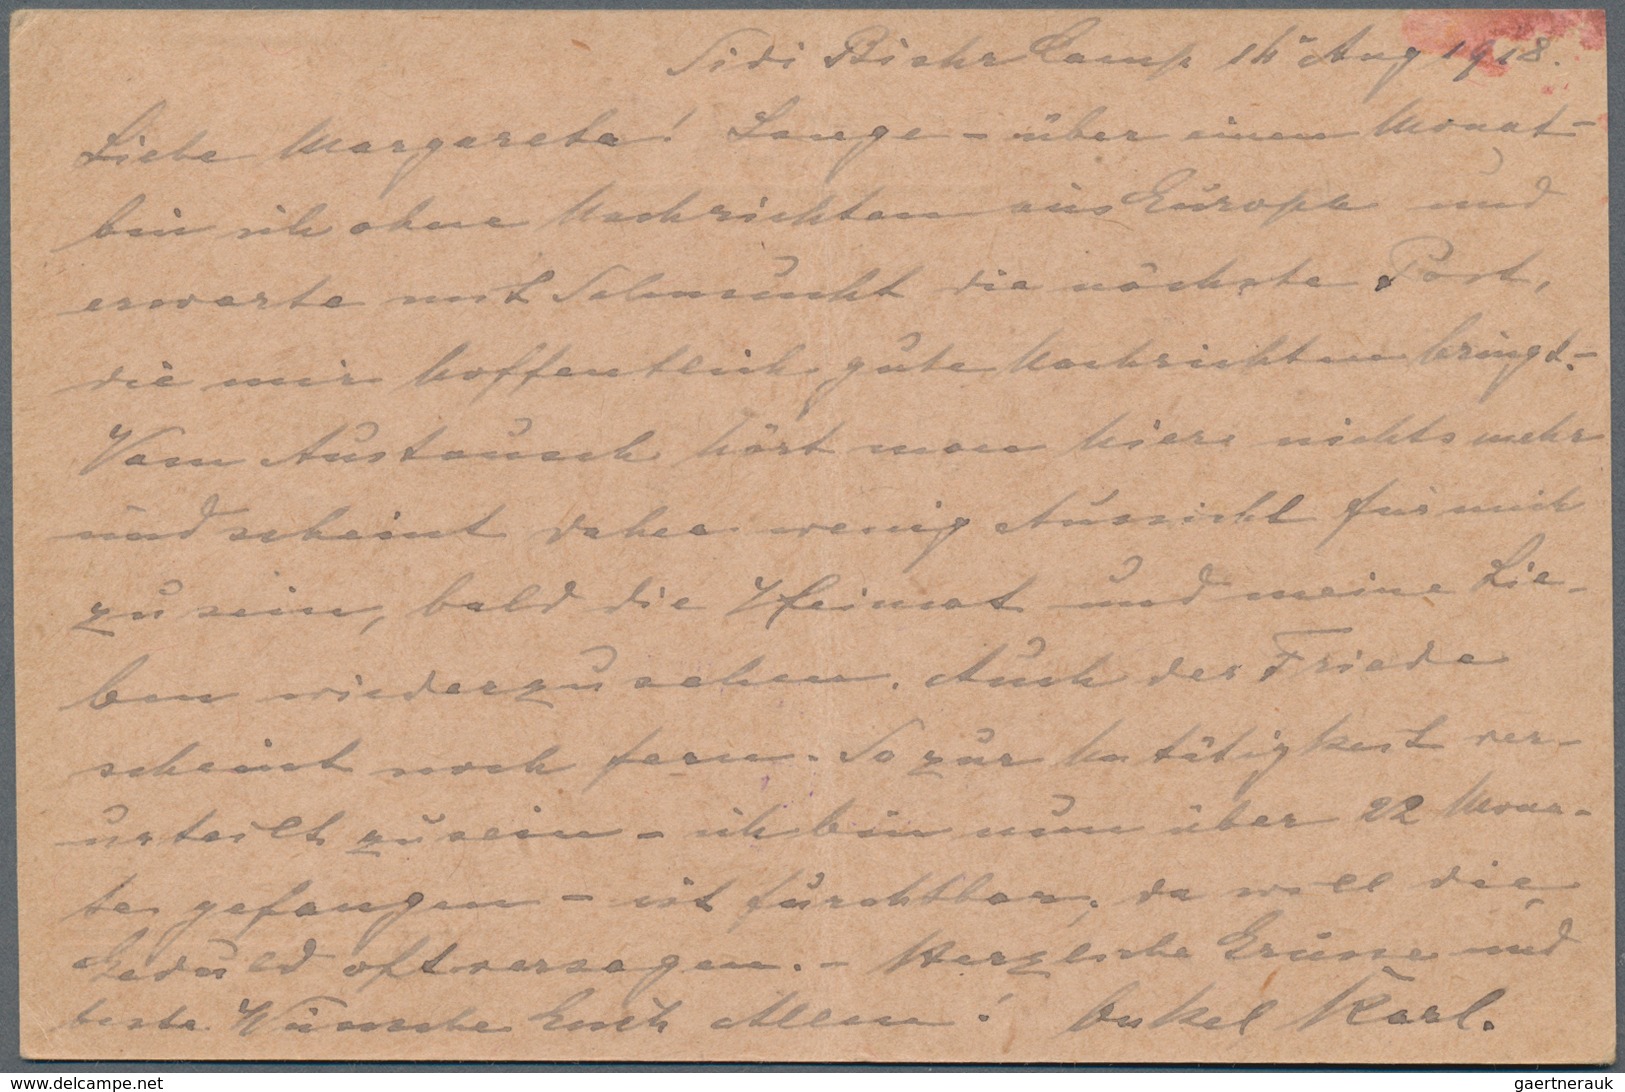 Sidi Bishr Camp 14 Aug 1918.
Liebe Margareta! Lange - über einen Monat -
bin ich ohne Nachrichten aus Europa und
erwarte mit Sehnsucht die nächste Post,
die mir hoffentlich gute Nachrichten bringt. -
Vom Austausch hört man hier nichts mehr
und scheint daher wenig Aussicht für mich
zu sein, bald die Heimat und meine Lie-
ben wiederzusehen. Auch der Friede
scheint noch fern. So zur Untätigkeit ver-
urteilt zu sein - ich bin nun über 22 Mona-
te gefangen - ist furchtbar, da will die
Geduld oft versagen. - Herzliche Grüsse und
beste Wünsche Euch Allen! Onkel Karl.
www.delcampe.net
gaertnerauk